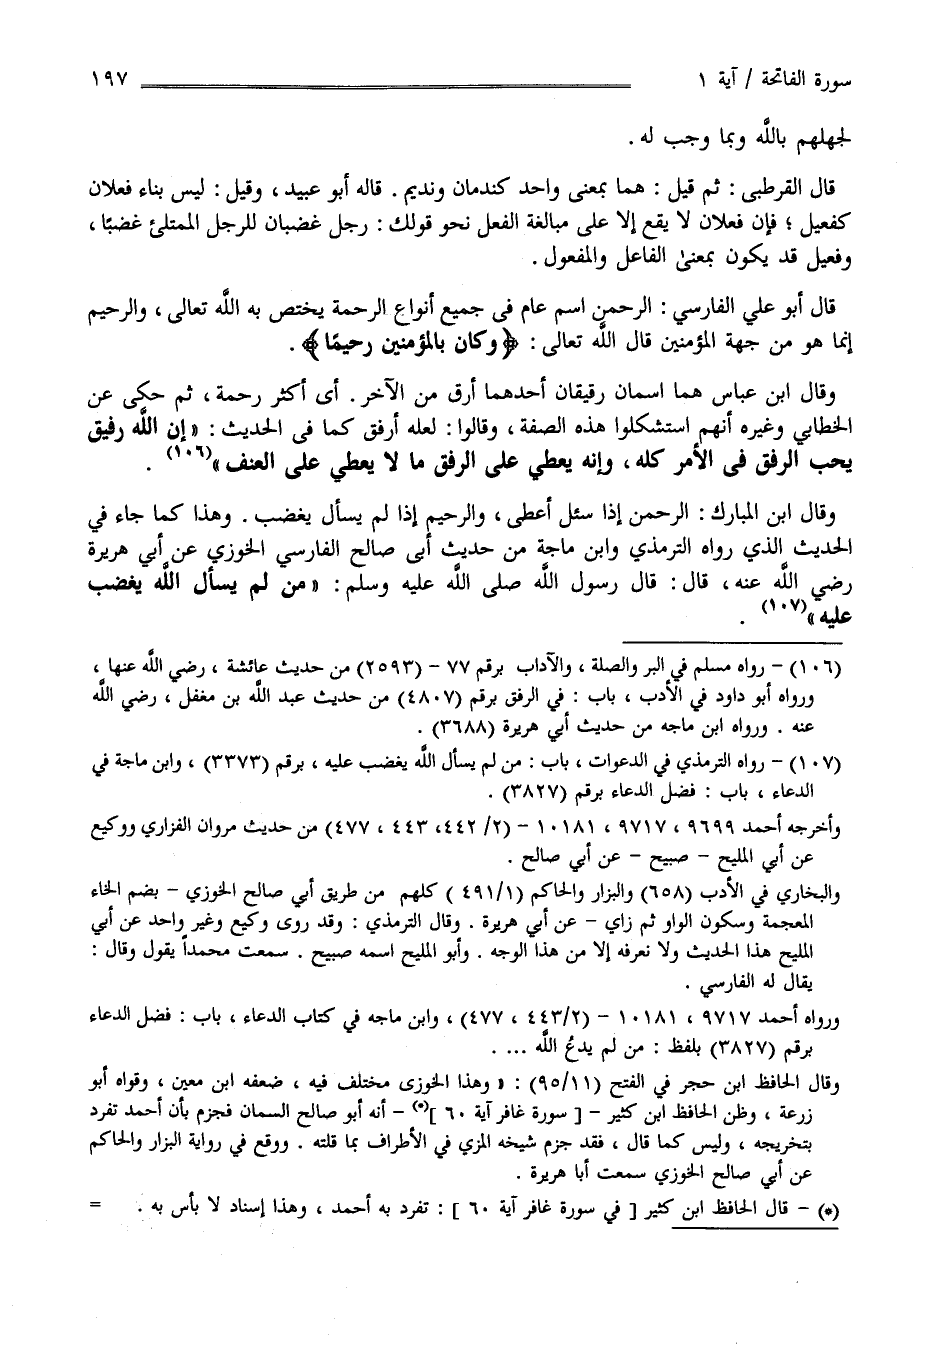 سورة الفاتحة / آية ١ ١٩٧
لجهلهم باللَّه وبما وجب له .
قال القرطبى : ثم قيل : هما بمعنى واحد كندمان ونديم . قاله أبو عبيد ، وقيل : ليس بناء فعلان
كفعيل ؛ فإن فعلان لا يقع إلا على مبالغة الفعل نحو قولك : رجل غضبان للرجل الممتلئ غضبًا ،
وفعيل قد يكون بمعنىٰ الفاعل والمفعول .
قال أبو علي الفارسي : الرحمن اسم عام فى جميع أنواع الرحمة يختص به اللَّه تعالى ، والرحيم
إنما هو من جهة المؤمنين قال اللَّه تعالى : ﴿ وكان بالمؤمنين رحيمًا ﴾ .
وقال ابن عباس هما اسمان رقيقان أحدهما أرق من الآخر . أى أكثر رحمة ، ثم حكى عن
الخطابي وغيره أنهم استشكلوا هذه الصفة ، وقالوا : لعله أرفق كما فى الحديث : « إن اللَّه رفيق
يحب الرفق فى الأمر كله ، وإنه يعطي على الرفق ما لا يعطي على العنف »(١٠٦) .
وقال ابن المبارك : الرحمن إذا سئل أعطى ، والرحيم إذا لم يسأل يغضب . وهذا كما جاء في
الحديث الذي رواه الترمذي وابن ماجة من حديث أبى صالح الفارسي الخوزي عن أبي هريرة
رضي اللَّه عنه ، قال : قال رسول اللَّه صلى اللَّه عليه وسلم : « من لم يسأل اللَّه يغضب
عليه »(١٠٧) .
(١٠٦) - رواه مسلم في البر والصلة ، والآداب برقم ٧٧ - (٢٥٩٣) من حديث عائشة ، رضي اللَّه عنها ،
ورواه أبو داود في الأدب ، باب : في الرفق برقم (٤٨٠٧) من حديث عبد اللَّه بن مغفل ، رضي اللَّه
عنه . ورواه ابن ماجه من حديث أبي هريرة (٣٦٨٨) .
(١٠٧) - رواه الترمذي في الدعوات ، باب : من لم يسأل اللَّه يغضب عليه ، برقم (٣٣٧٣) ، وابن ماجة في
الدعاء ، باب : فضل الدعاء برقم (٣٨٢٧) .
وأخرجه أحمد ٩٦٩٩ ، ٩٧١٧ ، ١٠١٨١ - (٢/ ٤٤٢، ٤٤٣ ، ٤٧٧) من حديث مروان الفزاري ووكيع
عن أبي المليح - صبيح - عن أبي صالح .
والبخاري في الأدب (٦٥٨) والبزار والحاكم (٤٩١/١ ) كلهم من طريق أبي صالح الخوزي - بضم الخاء
المعجمة وسكون الواو ثم زاي - عن أبي هريرة . وقال الترمذي : وقد روى وكيع وغير واحد عن أبي
المليح هذا الحديث ولا نعرفه إلا من هذا الوجه . وأبو المليح اسمه صبيح . سمعت محمداً يقول وقال :
يقال له الفارسي .
ورواه أحمد ٩٧١٧ ، ١٠١٨١ - (٤٤٣/٢ ، ٤٧٧) ، وابن ماجه في كتاب الدعاء ، باب : فضل الدعاء
برقم (٣٨٢٧) بلفظ : من لم يدعُ اللَّه ... .
وقال الحافظ ابن حجر في الفتح (٩٥/١١) : « وهذا الخوزى مختلف فيه ، ضعفه ابن معين ، وقواه أبو
زرعة ، وظن الحافظ ابن كثير - [ سورة غافر آية ٦٠ ](*) - أنه أبو صالح السمان فجزم بأن أحمد تفرد
بتخريجه ، وليس كما قال ، فقد جزم شيخه المزي في الأطراف بما قلته . ووقع في رواية البزار والحاكم
عن أبي صالح الخوزي سمعت أبا هريرة .
(*) - قال الحافظ ابن كثير [ في سورة غافر آية ٦٠ ] : تفرد به أحمد ، وهذا إسناد لا بأس به . =